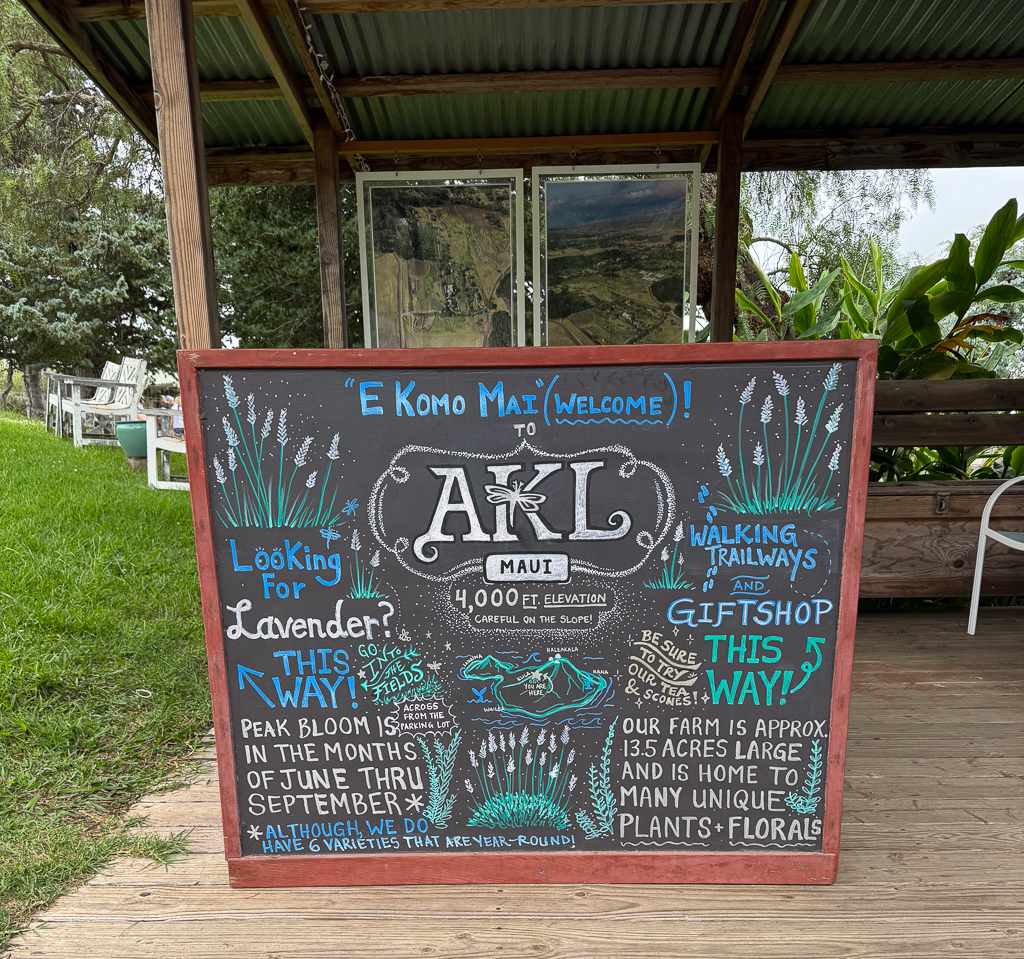 "E KOMO MAI" (WELCOME)!
TO
AKL
MAUI
4,000 FT. ELEVATION
CAREFUL ON THE SLOPE!
LOOKING
FOR
Lavender?
THIS
WAY!
GO INTO
THE
FIELDS
ACROSS
FROM THE
PARKING LOT
PEAK BLOOM IS
IN THE MONTHS
OF JUNE THRU
SEPTEMBER*
*ALTHOUGH, WE DO
HAVE 6 VARIETIES THAT ARE YEAR-ROUND!
LAHAINA
HALEAKALA
KULA
HANA
YOU ARE
HERE
WAILEA
WALKING
TRAILWAYS
AND
GIFTSHOP
BE SURE
TO TRY
OUR TEA
& SCONES!
THIS
WAY!
OUR FARM IS APPROX.
13.5 ACRES LARGE
AND IS HOME TO
MANY UNIQUE
PLANTS + FLORALS